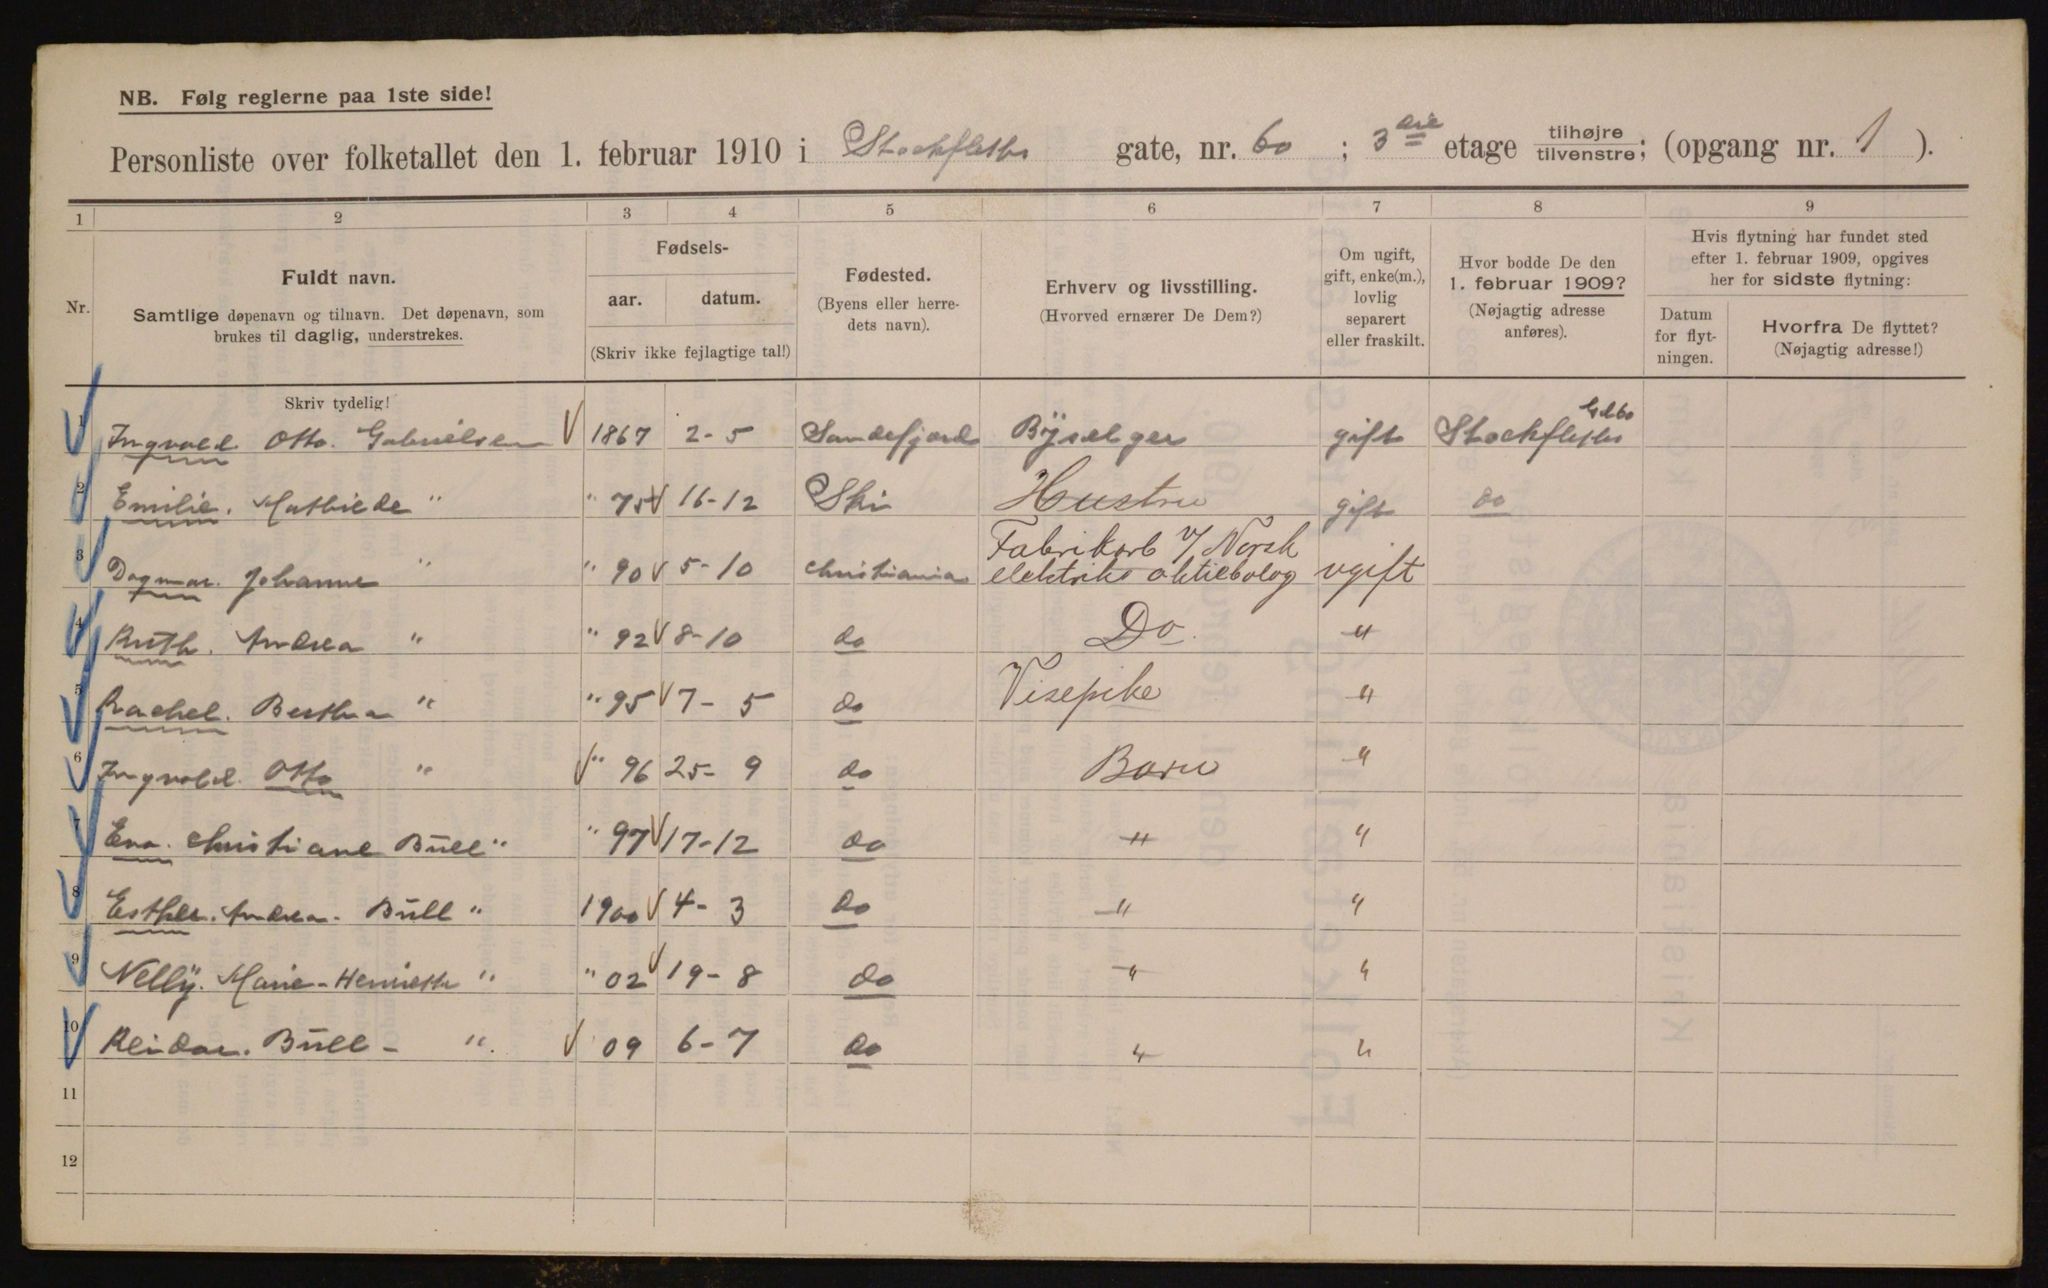 NB. Følg reglerne paa 1ste side!
Personliste over folketallet den 1. februar 1910 i Stockfleths gate, nr. 60 ; 3die etage tilhøjre tilvenstre; (opgang nr. 1 ).
1 2 3 4 5 6 7 8 9
Nr.
Fuldt navn.
Samtlige døpenavn og tilnavn. Det døpenavn, som
brukes til daglig, understrekes.
Fødsels-
aar. datum.
(Skriv ikke fejlagtige tal!)
Fødested.
(Byens eller herre-
dets navn).
Erhverv og livsstilling.
(Hvorved ernærer De Dem?)
Om ugift,
gift, enke(m.),
lovlig
separert
eller fraskilt.
Hvor bodde De den
1. februar 1909?
(Nøjagtig adresse
anføres).
Hvis flytning har fundet sted
efter 1. februar 1909, opgives
her for sidste flytning:
Datum
for flyt-
ningen.
Hvorfra De flyttet?
(Nøjagtig adresse!)
Skriv tydelig!
1 Ingvald Otto. Gabrielsen 1867 2-5 Sandefjord Byselger gift Stockfleths Gd 60
2 Emilie. Mathilde " " 75 16-12 Ski Hustru gift do
3 Dagmar. Johanne " " 90 5-10 Christiania Fabrikarb v/ Norsk
elektriks aktiebolag ugift
4 Ruth. Andrea " " 92 8-10 do Do. "
5 Rachel. Bertha " " 95 7-5 do Visepike "
6 Ingvald. Otto " " 96 25-9 do Barn "
7 Eva. Christiane Büll " " 97 17-12 do " "
8 Esther. Andrea. Büll " 1900 4-3 do " "
9 Nellÿ. Marie-Henriette " " 02 19-8 do " "
10 Reidar. Büll - " 09 6-7 do " "
11
12